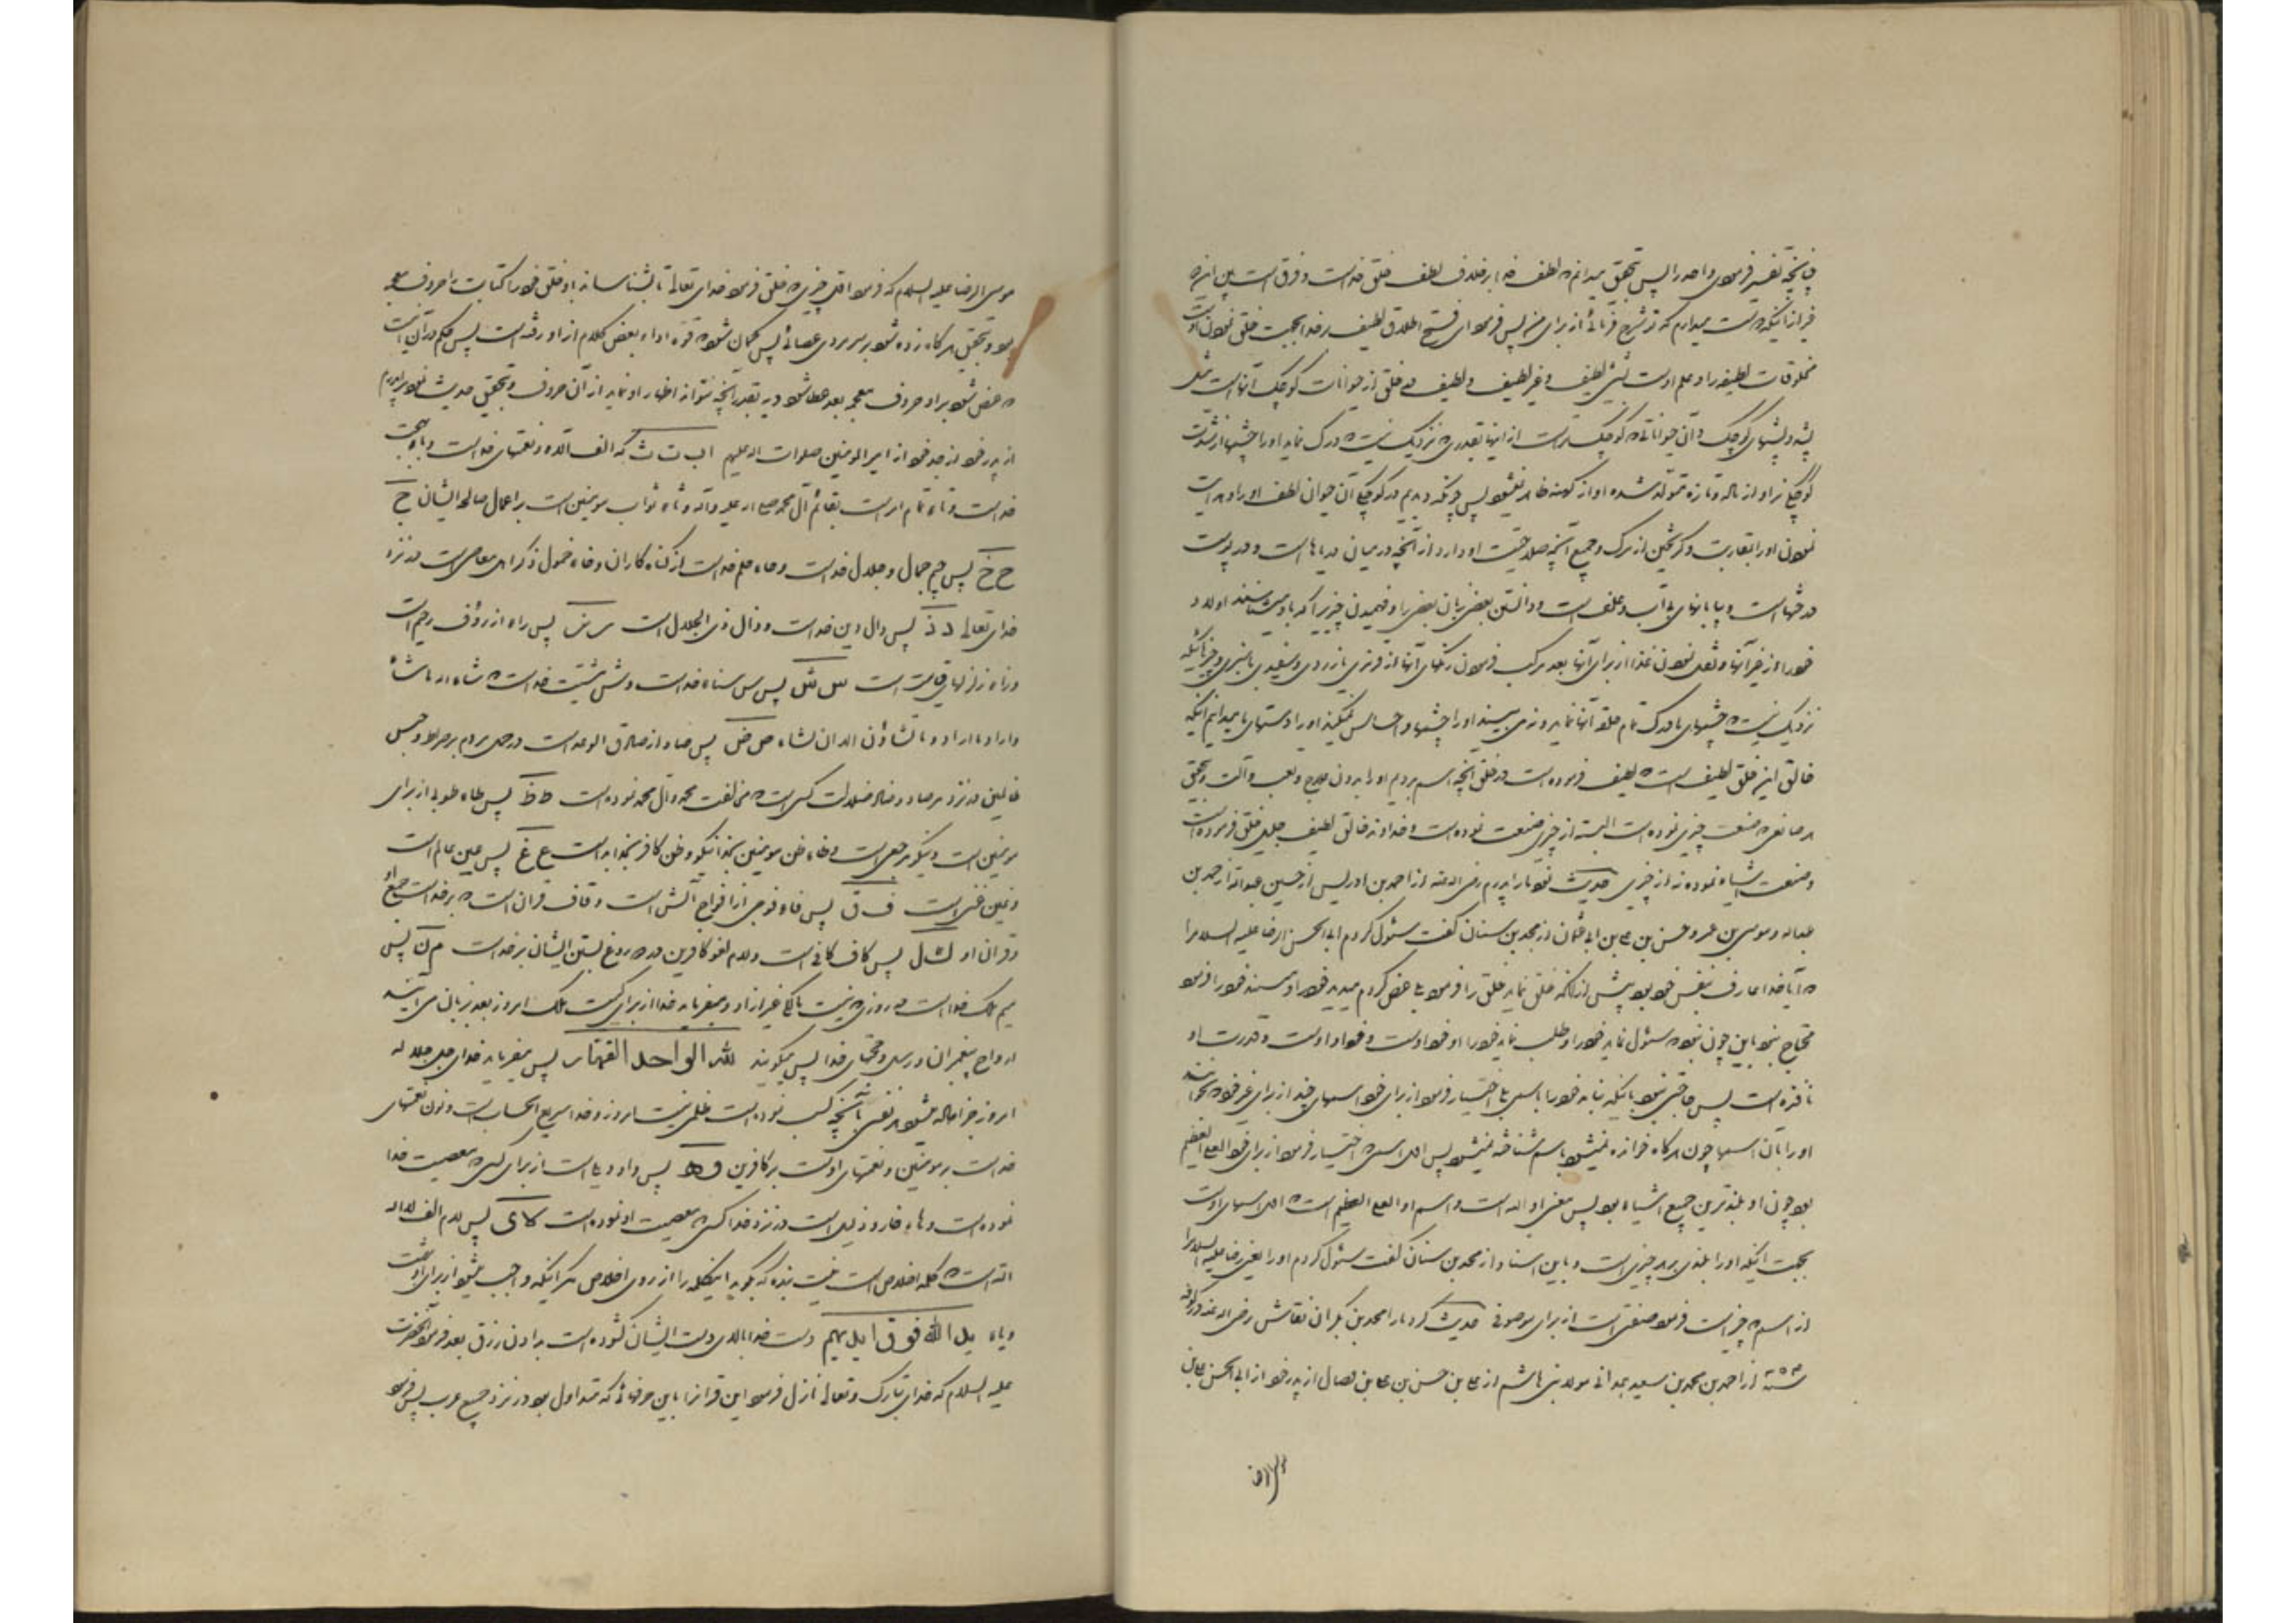 چنانچه تفسیر فرمودی واحد را پس بتحقیق میدانم که لطف خدا بر خلاف لطف خلق خداست و فرق است بین این
غیر از آنکه دوست میدارم که تو شرح فرمائی از برای من پس فرمود ای فتح اطلاق لطیف بر خدا بجهت خلق نمودن اوست
مخلوقات لطیفه را و علم اوست بشیئ لطیف و غیر لطیف و لطیف در خلق از حیوانات کوچک آنهاست مثل
پشه و پشهای کوچک و آن حیواناتی که کوچکتر است از اینها بقدری که نزدیک نیست که درک نماید او را چشمها از شدت
کوچکی نر او از ماده و تازه متولد شده او از کهنه ظاهر نمیشود پس چونکه دیدیم در کوچکی آن حیوان لطف او را و هدایت
نمودن او را بمقاربت و گریختن از مرگ و جمیع آنچه صلاحیت او دارد از آنچه در میان دریاها است و در پوست
درختها است و بیابانهای بی آب و علف است و دانستن بعضی زبان بعضی را و فهمیدن چیزیرا که باو میشناسند اولاد
خود را از غیر آنها و نقل نمودن غذا از برای آنها بعد مرکب فرمودن رنگهای آنها از قرمزی با زردی و سفیدی با سبزی و چیزهائیکه
نزدیک نیست که چشمهای ما درک تمام خلق آنها نماید و نمی بیند او را چشمها و احساس نمیکند او را دستهای ما میدانیم اینکه
خالق این خلق لطیف است که لطیف فرموده است در خلق آنچه اسم بردیم او را بدون علاج و تعب و آلت و بتحقیق
هر صانعی که صنعت چیزی نموده است البته از چیزی صنعت نموده است و خداوند خالق لطیف جلیل خلق فرموده است
و صنعت اشیاء نموده نه از چیزی حدیث نمود ما را پدرم رضی الله عنه از احمد بن ادریس از حسین عبدالله از محمد بن
عبدالله و موسی بن عمرو حسن بن علی بن ابی عثمان از محمد بن سنان گفت سئوال کردم ابی الحسن الرضا علیه السلام را
که آیا خدا عارف بنفس خود بود پیش از آنکه خلق نماید خلق را فرمود بلی عرض کردم میدید خود را و میشنید خود را فرمود
محتاج نبود باین چون نبود که سئوال نماید خود را و طلب نماید خود را او خود اوست و خود او اوست و قدرت او
نافذه است پس محتاج نبود باینکه بنامد خود را باسمی بلی اختیار فرمود از برای خود اسمهای چند از برای غیر خود که بخوانند
او را بآن اسمها چون هرگاه خوانده نمیشد باسم شناخته نمیشد پس اول اسمی که اختیار فرمود از برای خود العلی العظیم
بود چون او بلندترین جمیع اشیاء بود پس معنی او الله است و اسم او العلی العظیم است که اول اسمهای اوست
بجهت اینکه او را بلندی بر هر چیزی است و باین اسناد از محمد بن سنان گفت سئوال کردم او را یعنی رضا علیه السلام را
از اسم که چیست فرمود صفتی است از برای موصوفی حدیث کرد ما را محمد بن بکران نقاش رضی الله عنه در کوفه
سنه ۳۵۴ از احمد بن محمد بن سعید همدانی مولا بنی هاشم از علی بن حسن بن علی بن فضال از پدر خود از ابی الحسن علی بن
موسی الرضا
موسی الرضا علیه السلام که فرمود اول چیزی که خلق فرمود خدای تعالی تا بشناساند باو خلق خود را کتابت با حروف معجم
بود و بتحقیق هرگاه زده شود بر سر مردی عصائی پس گمان شود که قوه اداء بعض کلام از او رفته است پس حکم در آن اینست
که عرض شود بر او حروف معجم بعد عطا شود دیه بقدر آنچه نتواند اظهار او نماید از آن حروف و بتحقیق حدیث نمود مرا پدرم
از پدر خود از جد خود از امیر المومنین صلوات الله علیهم ا ب ت ث که الف آلاء و نعمتهای خداست و باء بهجت
خداست و تاء تمام امر است بقائم آل محمد صلی الله علیه و آله و ثاء ثواب مومنین است بر اعمال صالحه ایشان ج
ح خ پس جیم جمال و جلال خداست و حاء حلم خداست از گناه کاران و خاء خمول ذکر اهل معاصی است در نزد
خدای تعالی د ذ پس دال دین خداست و ذال ذی الجلال است ر ز پس راء از رؤف رحیم است
و زاء زلزلهای قیامت است س ش پس س سناء خداست و ش مشیت خداست که شاء الله ما شاء
و اراد ما اراد و ما تشاؤن الا ان یشاء الله ص ض پس صاد از صادق الوعد است در حمل مردم بر صراط و حبس
ظالمین در نزد مرصاد و ضاد ضلالت کسی است که مخالفت محمد و آل محمد نموده است ط ظ پس طاء طوبی از برای
مومنین است و نیکو مرجعی است و ظاء ظن مومنین بخدا نیکو و ظن کافر بخدا بد است ع غ پس عین عالم است
و غین غنی است ف ق پس فاء فوجی از افواج آتش است و قاف قرآن است که بر خداست جمع او
و قرآن او ک ل پس کاف کافی است و لام لغو کافرین در دروغ بستن ایشان بر خداست م ن پس
میم ملک خداست در روزی که نیست مالکی غیر از او و میفرماید خدا از برای کیست ملک امروز بعد بزبان می آیند
ارواح پیغمبران و رسل و حجتهای خدا پس میگویند لله الواحد القهار پس میفرماید خدای جل جلاله
امروز جزا داده میشود هر نفسی بآنچه کسب نموده است ظلمی نیست امروز و خدا سریع الحساب است و نون نعمتهای
خداست بر مومنین و نقمتهای اوست بر کافرین و ه پس واو ویل است از برای کسی که معصیت خدا
نموده است و هاء خار و ذلیل است در نزد خدا کسی که معصیت او نموده است لا ی پس لام الف لا اله
الا الله است که کلمه اخلاص است نیست بنده که بگوید اینکلمه را از روی اخلاص مگر اینکه واجب میشود از برای او بهشت
و یاء ید الله فوق ایدیهم دست خدا بالای دست ایشان گشوده است بدادن رزق بعد فرمود آنحضرت
علیه السلام که خدای تبارک و تعالی نازل فرمود این قرآنرا باین حرفهائی که متداول بود در نزد جمیع عرب پس فرمود